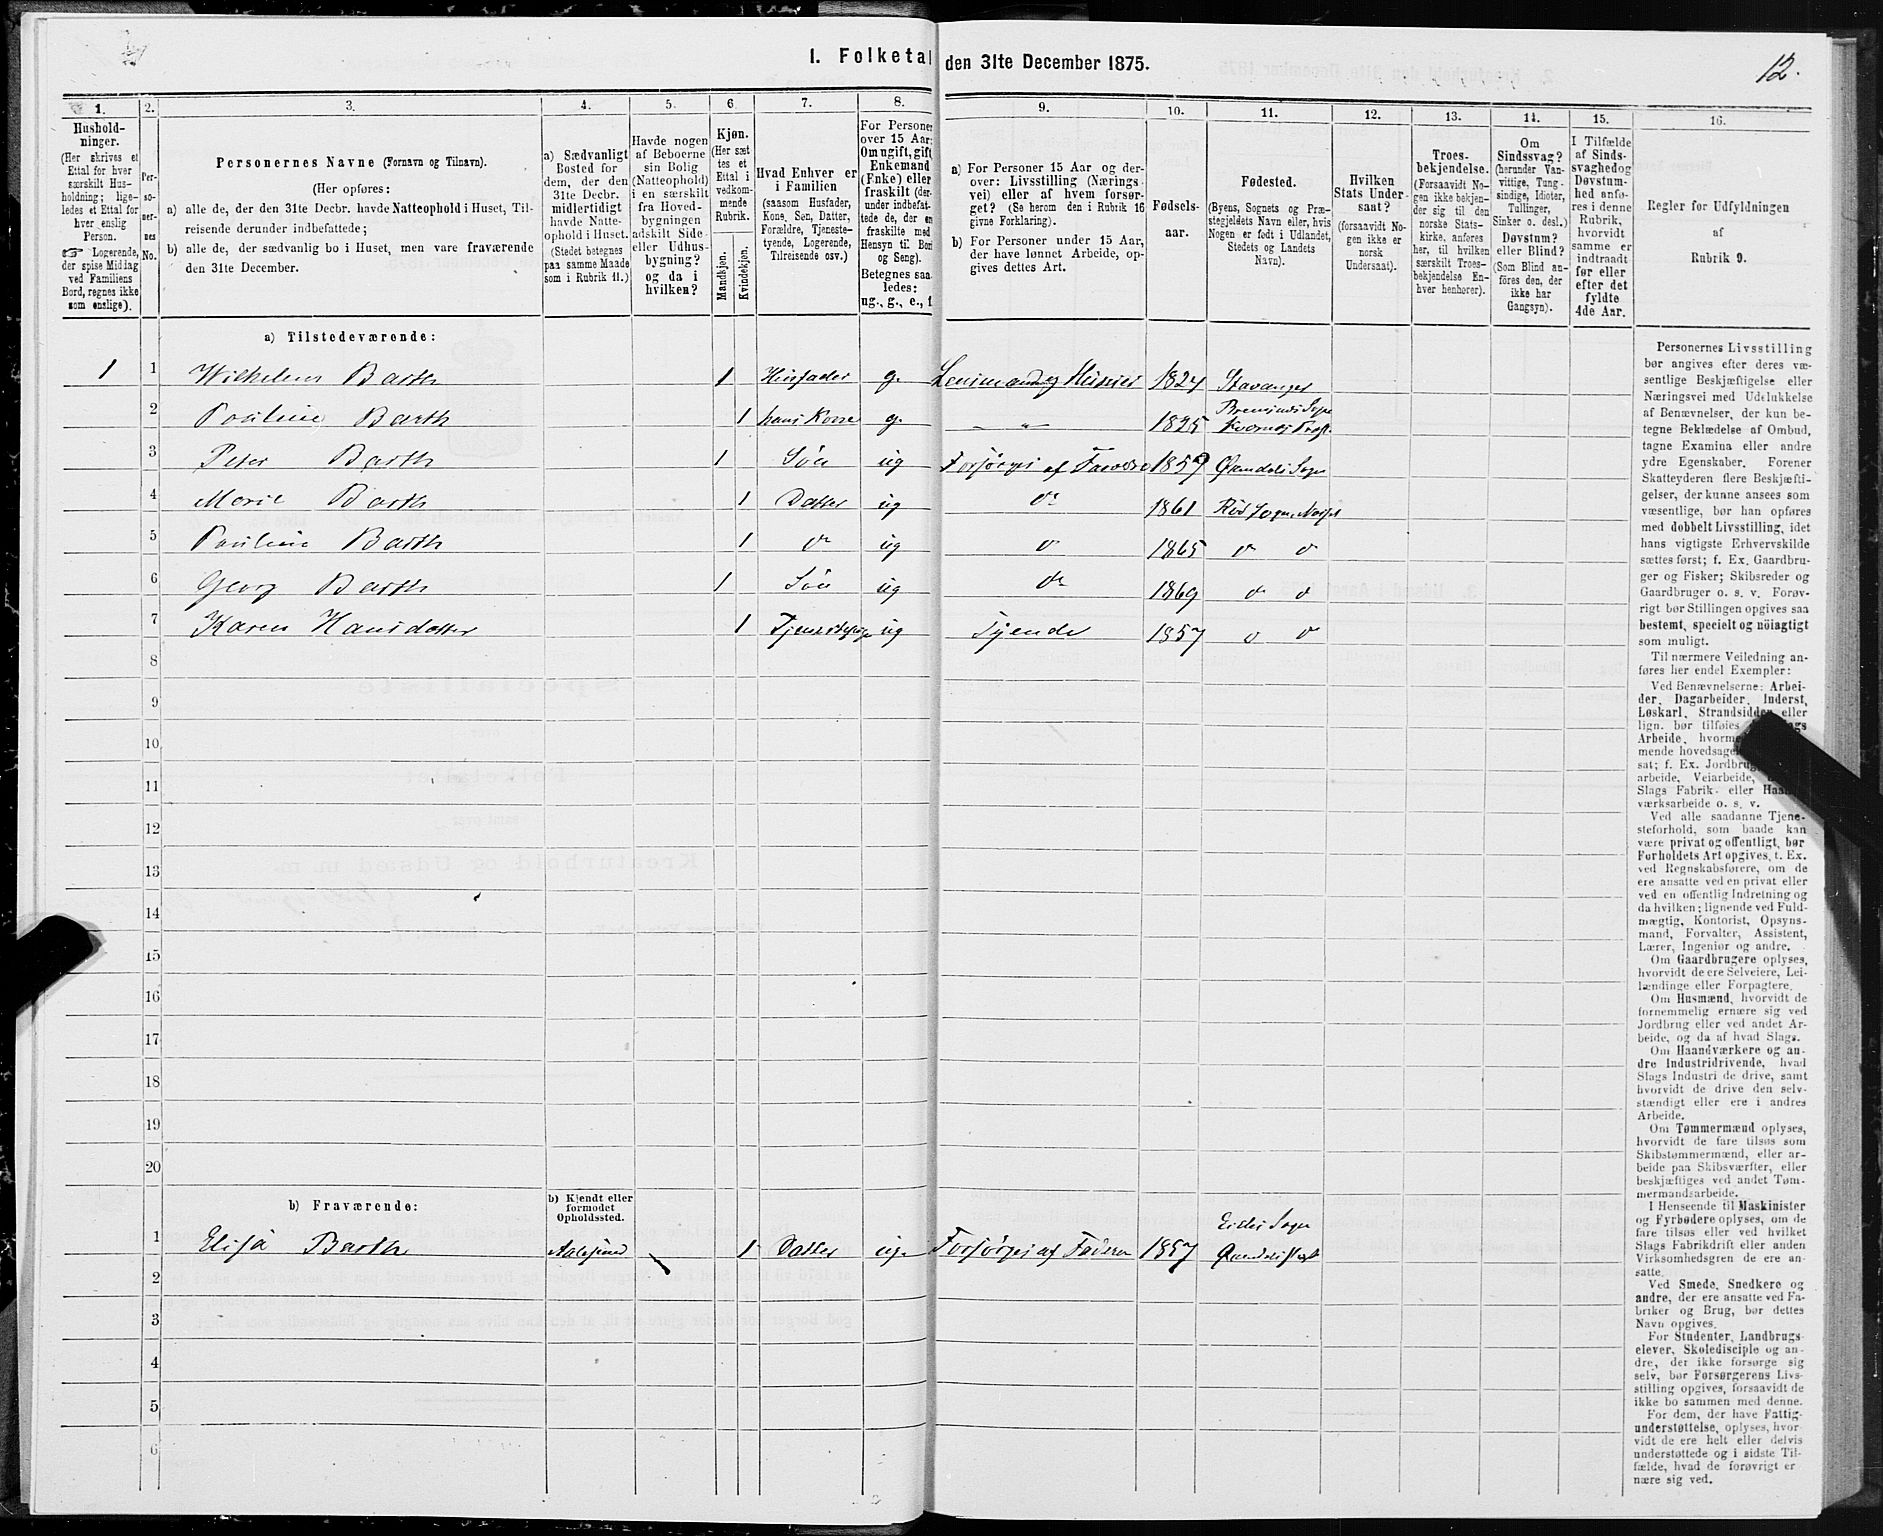 12.
I. Folketal den 31te December 1875.
1.
2.
3.
4.
5.
6
7.
8.
9.
10.
11.
12.
13.
14.
15.
16.
Hushold-
ninger.
(Her skrives et
Ettal for hver
særskilt Hus-
holdning; lige-
ledes et Ettal for
hver enslig
Person.
☞ Logerende,
der spise Middag
ved Familiens
Bord, regnes ikke
som enslige).
Per-
so-
ner-
nes
No.
Personernes Navne (Fornavn og Tilnavn).
(Her opføres:
a) alle de, der den 31te Decbr. havde Natteophold i Huset, Til-
reisende derunder indbefattede;
b) alle de, der sædvanlig bo i Huset, men vare fraværende
den 31te December.
a) Sædvanligt
Bosted for
dem, der den
31te Decbr.
midlertidigt
havde Natte-
ophold i Huset.
(Stedet betegnes
paa samme Maade
som i Rubrik 11.)
Havde nogen
af Beboerne
sin Bolig
(Natteophold)
i en særskilt
fra Hoved-
bygningen
adskilt Side-
eller Udhus-
bygning?
og da i
hvilken?
Kjøn.
(Her sæt
tes et
Ettal i
vedkom-
mende
Rubrik.
Mandkjøn.
Kvindekjøn.
Hvad Enhver er
i Familien
(saasom Husfader,
Kone, Søn, Datter,
Forældre, Tjeneste-
tyende, Logerende,
Tilreisende osv.)
For Persone
over 15 Aar:
Om ugift, gift
Enkemand
(Enke) eller
fraskilt (der-
under indbefat-
tede de, der en
fraskilte med
Hensyn til Bor
og Seng).
Betegnes saa
ledes:
ug., g., e., f.
a) For Personer 15 Aar og der-
over: Livsstilling (Nærings-
vei) eller af hvem forsør-
get? (Se herom den i Rubrik 16
givne Forklaring).
b) For Personer under 15 Aar,
der have lønnet Arbeide, op-
gives dettes Art.
Fødsels-
aar.
Fødested.
(Byens, Sognets og Præ-
stegjeldets Navn eller, hvis
Nogen er født i Udlandet,
Stedets og Landets
Navn).
Hvilken
Stats Under-
saat?
(forsaavidt No-
gen ikke er
norsk
Undersaat).
Troes-
bekjendelse.
(Forsaavidt No-
gen ikke bekjen-
der sig til den
norske Stats-
kirke, anføres
her, til hvilken
særskilt Troes-
bekjendelse En-
hver henhører).
Om
Sindssvag?
(herunder Van-
vittige, Tung-
sindige, Idioter,
Tullinger,
Sinker o. desl.)
Døvstum?
eller Blind?
(Som Blind an-
føres den, der
ikke har
Gangsyn).
I Tilfælde
af Sinds-
svaghed og
Døvstum-
hed anfø-
res i denne
Rubrik,
hvorvidt
samme er
indtraadt
før eller
efter det
fyldte
4de Aar.
Regler for Udfyldningen
af
Rubrik 9.
a) Tilstedeværende:
1 1 Wilhelm Barth 1 Husfader g. Lensmand og Huseier 1824 Stavanger
2 Pauline Barth 1 hans Kone g. — „ — 1825 Bremsnes Sogn Kvernes Præst.
3 Peter Barth 1 Søn ug Forsørges af Faderen 1859 Øxendals Sogn
4 Marie Barth 1 Datter ug do 1861 Rød Sogn, Nesset
5 Pauline Barth 1 do ug do 1865 do do
6 Georg Barth 1 Søn ug do 1869 do do
7 Karen Hansdatter 1 Tjenestepige ug Tjende 1857 do do
8
9
10
11
12
13
14
15
16
17
18
19
20
b) Fraværende:
b) Kjendt eller
formodet
Opholdssted.
1 Elisa Barth Aalesund 1 Datter ug. Forsørges af Faderen 1857 Eids Sogn
2
3
4
5
6
Personernes Livsstilling
bør angives efter deres væ-
sentlige Beskjæftigelse eller
Næringsvei med Udelukkelse
af Benævnelser, der kun be-
tegne Beklædelse af Ombud,
tagne Examina eller andre
ydre Egenskaber. Forener
Skatteyderen flere Beskjæfti-
gelser, der kunne ansees som
væsentlige, bør han opføres
med dobbelt Livsstilling, idet
hans vigtigste Erhvervskilde
sættes først; f. Ex. Gaardbru-
ger og Fisker; Skibsreder og
Gaardbruger o. s. v. Forøv-
rigt bør Stillingen opgives saa
bestemt, specielt og nöiagtigt
som muligt.
Til nærmere Veiledning an-
føres her endel Exempler:
Ved Benævnelserne: Arbei-
der, Dagarbeider, Inderst,
Løskarl, Strandsidder eller
lign. bør tilføies
Arbeide, hvorm
mende hovedsage
sat; f. Ex. Jordbrug
arbeide, Veiarbeide,
Slags Fabrik- eller Haand-
værksarbeide o. s. v.
Ved alle saadanne Tjene-
steforhold, som baade kan
være privat og offentligt, bør
Forholdets Art opgives, t. Ex.
ved Regnskabsførere, om de
ere ansatte ved en privat eller
ved en offentlig Indretning og
da hvilken; lignende ved Fuld-
mægtig, Kontorist, Opsyns-
mand, Forvalter, Assistent,
Lærer, Ingeniør og andre.
Om Gaardbrugere oplyses,
hvorvidt de ere Selveiere, Lei-
lændinge eller Forpagtere.
Om Husmænd, hvorvidt de
fornemmelig ernære sig ved
Jordbrug eller ved andet Ar-
beide, og da af hvad Slags.
Om Haandværkere og an-
dre Industridrivende, hvad
Slags Industri de drive, samt
hvorvidt de drive den selv-
stændigt eller ere i andres
Arbeide.
Om Tømmermænd oplyses,
hvorvidt de fare tilsøs som
Skibstømmermænd, eller ar-
beide paa Skibsværfter, eller
beskjæftiges ved andet Tøm-
mermandsarbeide.
I Henseende til Maskinister
og Fyrbødere oplyses, om de
fare tilsøs eller ved hvilket
Slags Fabrikdrift eller anden
Virksomhedsgren de ere an-
satte.
Ved Smede, Snedkere og
andre, der ere ansatte ved Fa-
briker og Brug, bør dettes
Navn opgives.
For Studenter, Landbrugs-
elever, Skoledisciple og an-
dre, der ikke forsørge sig
selv, bør Forsørgerens Livs-
stilling opgives, forsaavidt de
ikke bo sammen med denne.
For dem, der have Fattig-
understøttelse, oplyses, hvor-
vidt de ere helt eller delvis
understøttede og i sidste Til-
fælde, hvad de forøvrigt er
nære sig ved.